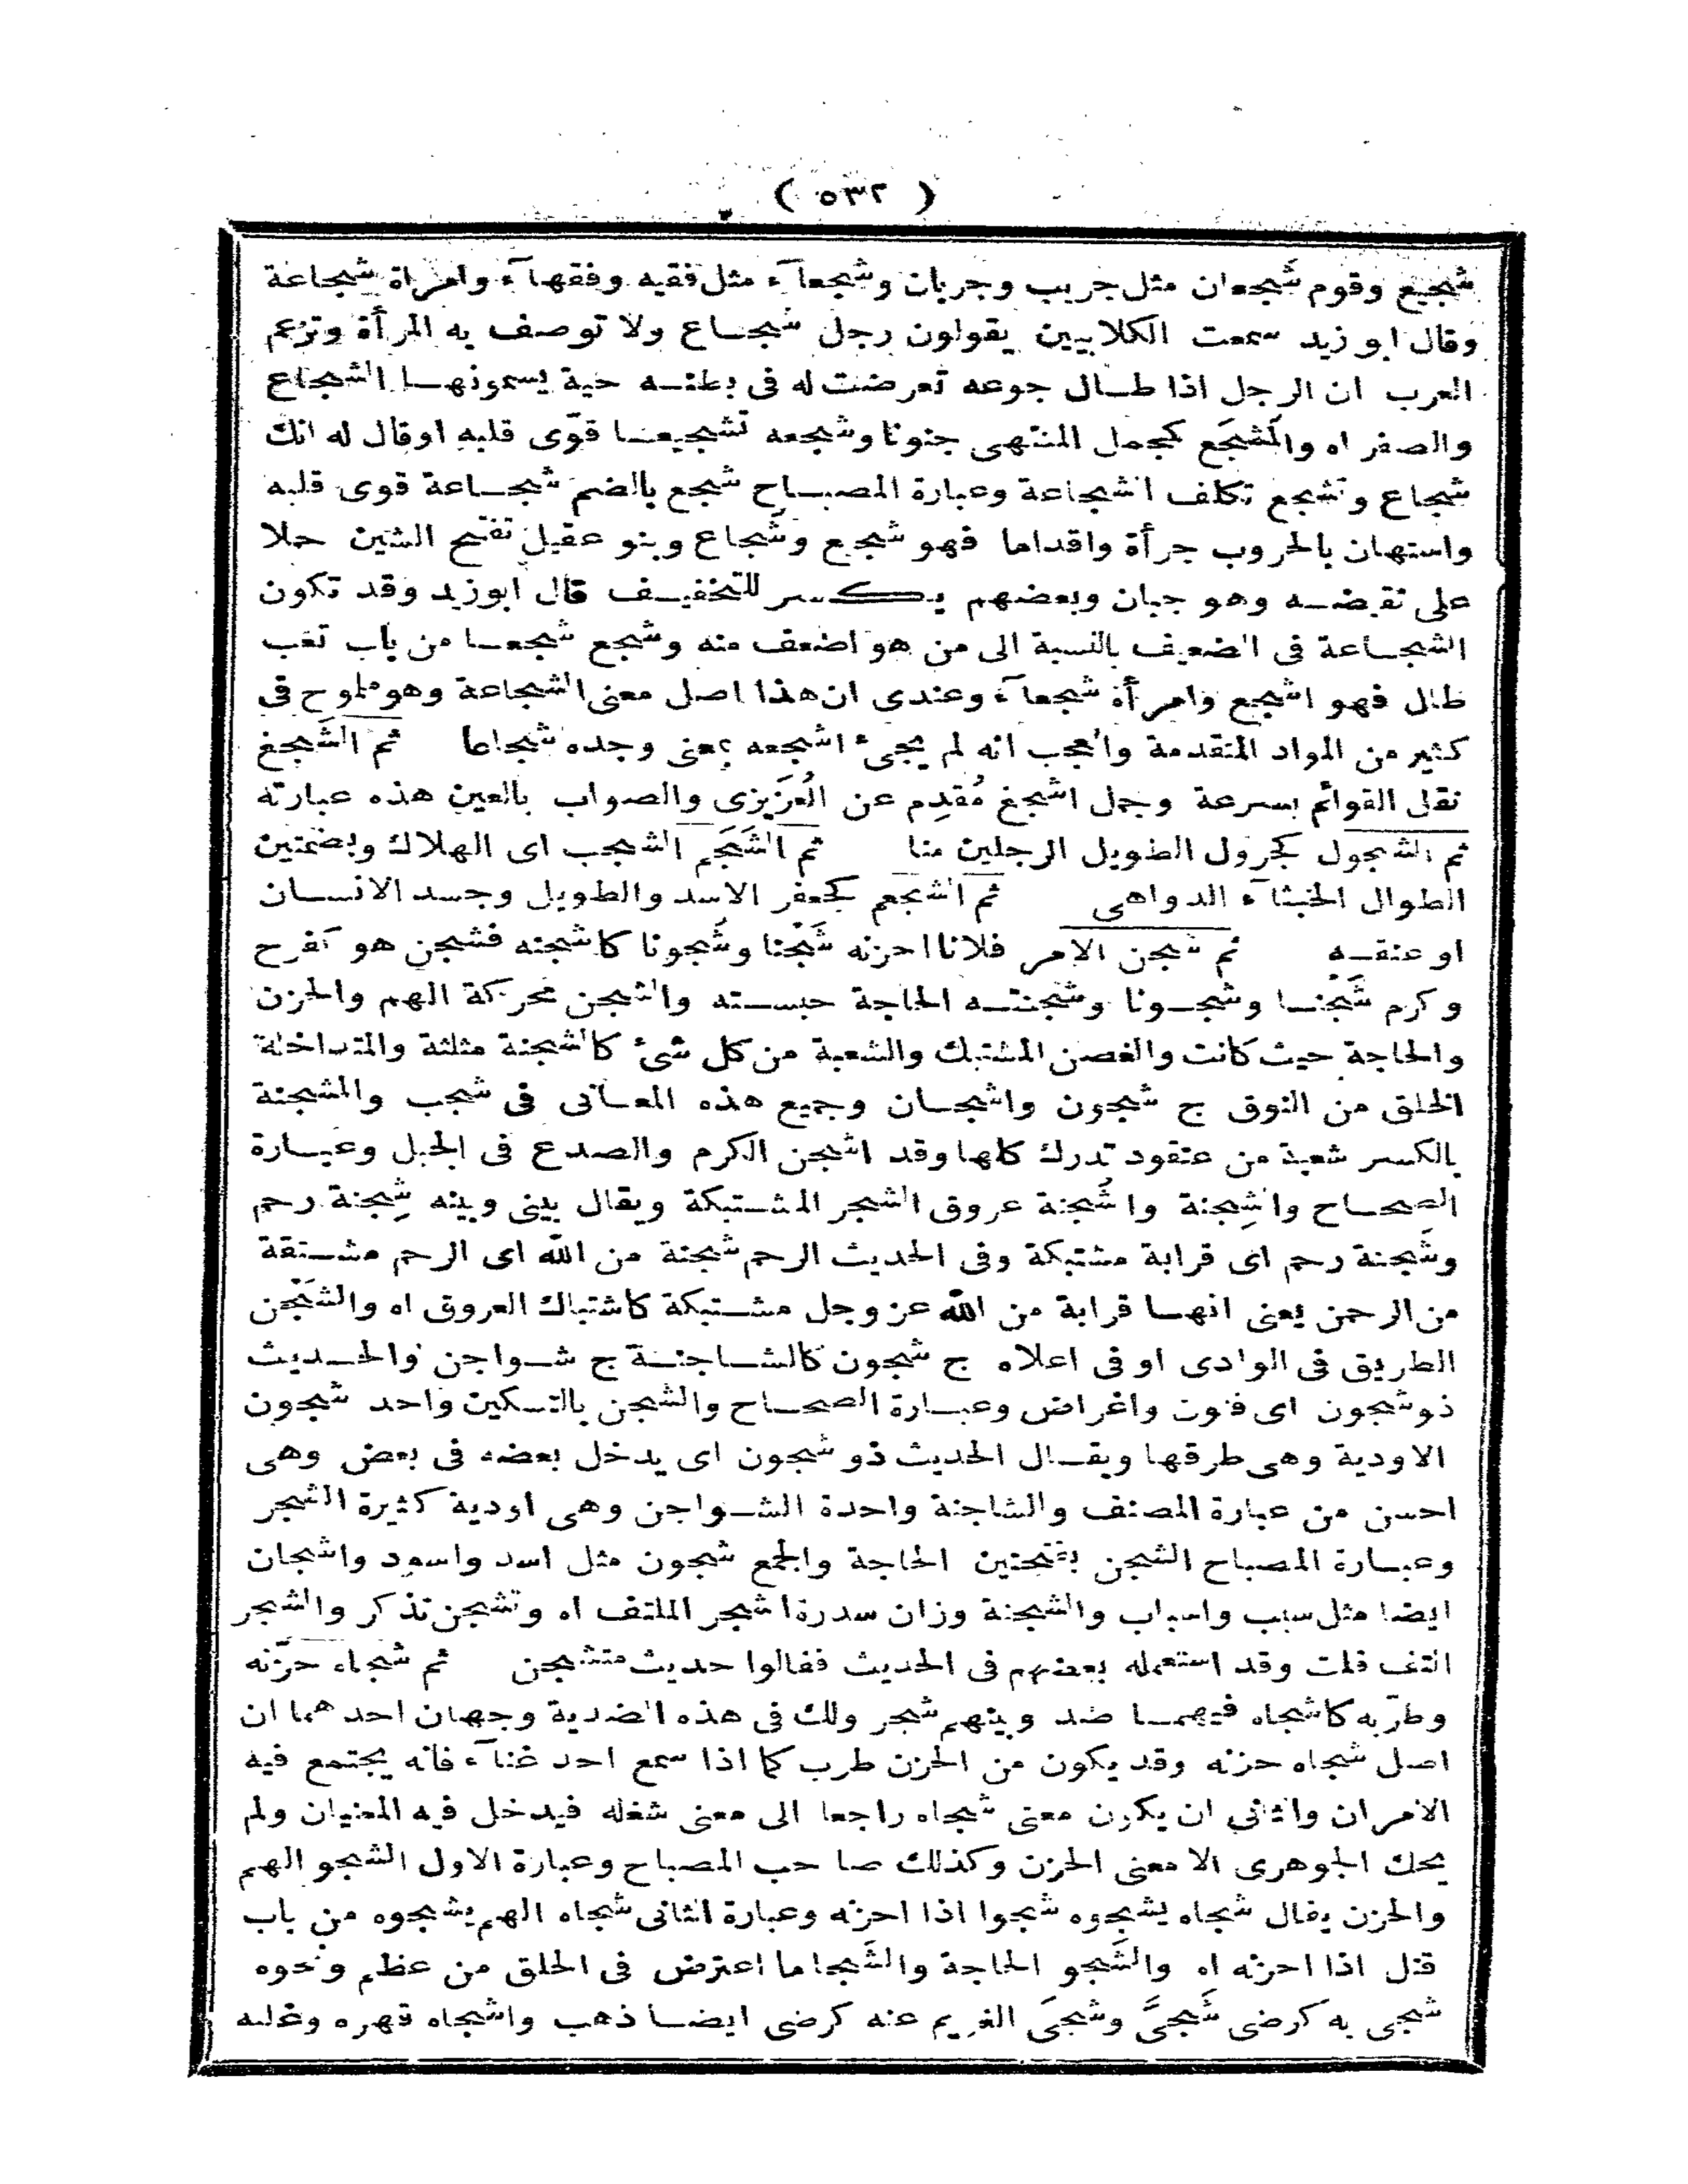 ( ٥٣٢ )
شجيع وقوم شَجعان مثل جريب وجربان وشجعآء مثل فقيه وفقهآء وامراة شجاعة
وقال ابو زيد سمعت الكلابيين يقولون رجل شجاع ولا توصف به المرأة وتزعم
العرب ان الرجل اذا طال جوعه تعرضت له فى بطنه حية يسمونها الشجاع
والصفر اه والمُشجَع كمجمل المنتهى جنونا وشجعه تشجيعا قوّى قلبه او قال له انك
شجاع وتشجع تكلف الشجاعة وعبارة المصباح شجع بالضم شجاعة قوى قلبه
واستهان بالحروب جرأة واقداما فهو شجيع وشُجاع وبنو عقيل تفتح الشين حملا
على نقيضه وهو جبان وبعضهم يكسر للتخفيف قال ابوزيد وقد تكون
الشجاعة فى الضعيف بالنسبة الى من هو اضعف منه وشجع شجعا من باب تعب
طال فهو اشجع وامرأة شجعآء وعندى ان هذا اصل معنى الشجاعة وهو ملموح فى
كثير من المواد المتقدمة والعجب انه لم يجئ اشجعه بمعنى وجده شجاعا ثم الشَجغ
نقل القوائم بسرعة وجمل اشجغ مُقدِم عن العُزَيزى والصواب بالعين هذه عبارته
ثم الشجول كجرول الطويل الرجلين منا ثم الشَجَم الشجب اى الهلاك وبضمتين
الطوال الخبثآء الدواهى ثم الشجعم كجعفر الاسد والطويل وجسد الانسان
او عنقه ثم شجن الامر فلانا احزنه شَجْنا وشُجونا كاشجنه فشجن هو كفرح
وكرم شَجَنا وشجونا وشجنته الحاجة حبسته والشجن محركة الهم والحزن
والحاجة حيث كانت والغصن المشتبك والشعبة من كل شئ كالشجنة مثلثة والمتداخلة
الخلق من النوق ج شجون واشجان وجميع هذه المعانى فى شجب والشجنة
بالكسر شعبة من عنقود تدرك كلها وقد اشجن الكرم والصدع فى الجبل وعبارة
الصحاح والشِجنة والشُجنة عروق الشجر المشتبكة ويقال بينى وبينه شِجنة رحم
وشُجنة رحم اى قرابة مشتبكة وفى الحديث الرحم شجنة من الله اى الرحم مشتقة
من الرحمن يعنى انها قرابة من الله عز وجل مشتبكة كاشتباك العروق اه والشَجْن
الطريق فى الوادى او فى اعلاه ج شجون كالشاجنة ج شواجن والحديث
ذو شجون اى فنون واغراض وعبارة الصحاح والشجن بالتسكين واحد شجون
الاودية وهى طرقها ويقال الحديث ذو شجون اى يدخل بعضه فى بعض وهى
احسن من عبارة المصنف والشاجنة واحدة الشواجن وهى اودية كثيرة الشجر
وعبارة المصباح الشجن بفتحتين الحاجة والجمع شجون مثل اسد واسود واشجان
ايضا مثل سبب واسباب والشجنة وزان سدرة الشجر الملتف اه وتشجن تذكر والشجر
التف قلت وقد استعمله بعضهم فى الحديث فقالوا حديث متشجن ثم شجاه حزّنه
وطرّبه كاشجاه فيهما ضد وبينهم شجر ولك فى هذه الضدية وجهان احدهما ان
اصل شجاه حزنه وقد يكون من الحزن طرب كما اذا سمع احد غنآء فانه يجتمع فيه
الامران والثانى ان يكون معنى شجاه راجعا الى معنى شغله فيدخل فيه المعنيان ولم
يحك الجوهرى الا معنى الحزن وكذلك صاحب المصباح وعبارة الاول الشجو الهم
والحزن يقال شجاه يشجوه شجوا اذا احزنه وعبارة الثانى شجاه الهم يشجوه من باب
قتل اذا احزنه اه والشَجو الحاجة والشَجا ما اعترض فى الحلق من عظم ونحوه
شجى به كرضى شَجىً وشجَى الغريم عنه كرضى ايضا ذهب واشجاه قهره وغلبه